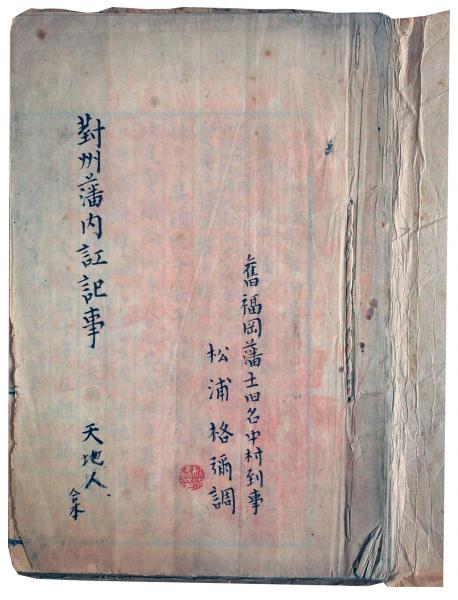 舊福岡藩士旧名中村到事
松浦格彌調
對州藩内訌記事 天地人 合本